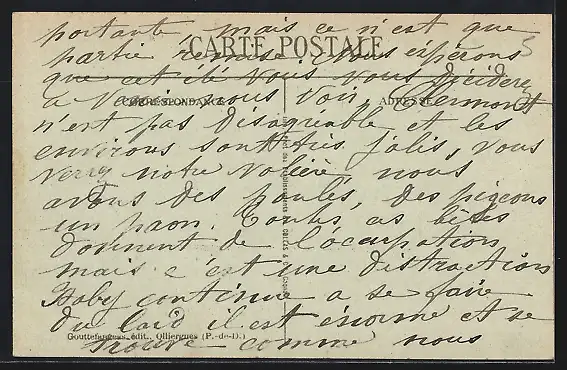 portante, mais ce n'est que
CARTE POSTALE
partie remise. Nous espérons
que cet été vous vous déciderez
à venir nous voir, Clermont
CORRESPONDANCE
ADRESSE
n'est pas désagréable et les
environs sont très jolis, vous
verrez notre volière, nous
avons des poules, des pigeons
un paon. Toutes ces bêtes
donnent de l'occupation
mais c'est une distraction
Gaby continue a se faire
du lard il est énorme et se
Gouttefangeas, édit., Olliergues (P.-de-D.)
trouve comme nous